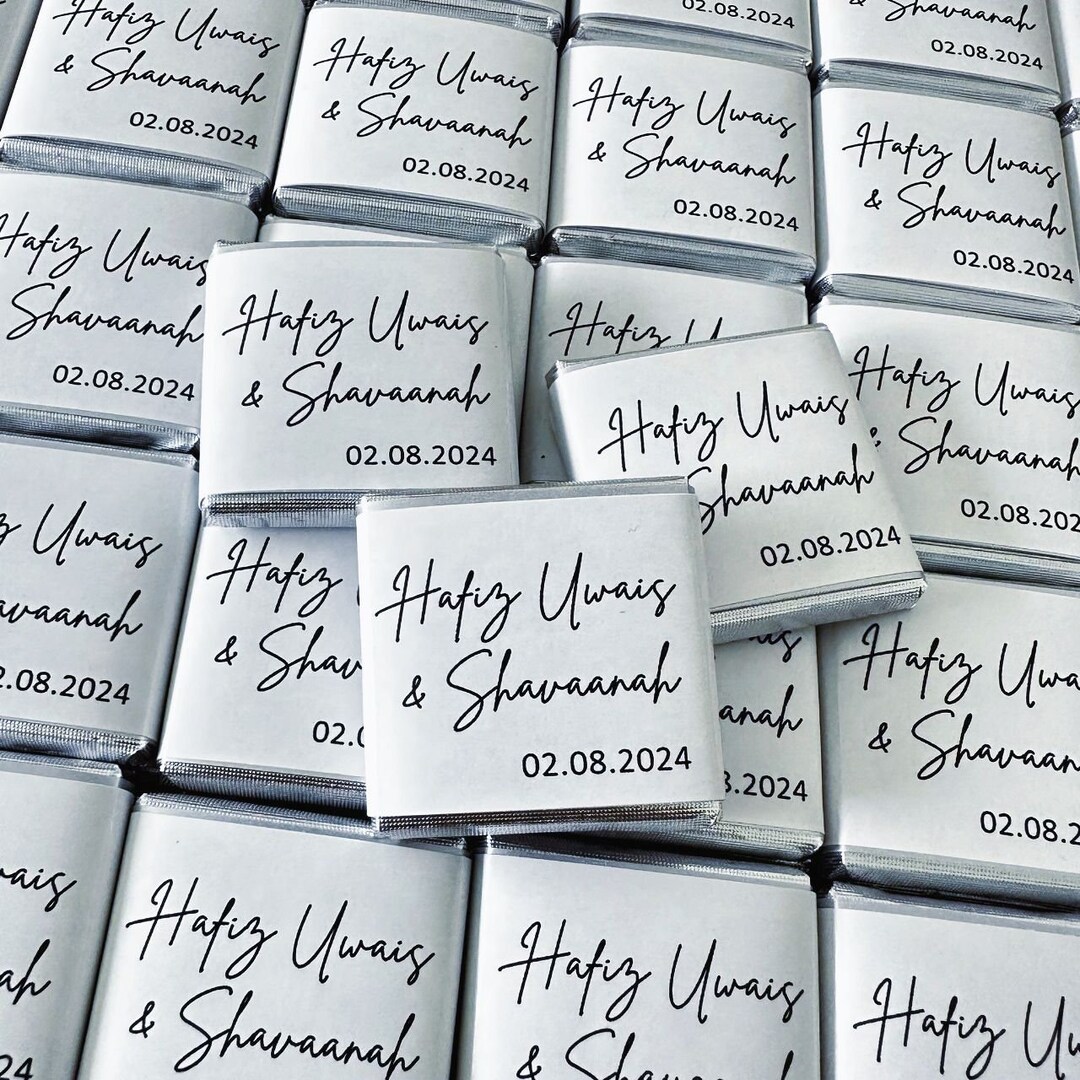 Hafiz Uwais
& Shavaanah
02.08.2024
Hafiz Uwais
& Shavaanah
02.08.2024
Hafiz Uwais
& Shavaanah
02.08.2024
Hafiz Uwais
& Shavaanah
02.08.2024
02.08.2024
Shavaanah
02.08.2024
Hafiz Uwais
Shavaanah
02.08.2024
Hafiz Uwais
& Shavaanah
02.08.2024
Hafiz
Hafiz Uwais
Shavaanah
02.08.2024
Hafiz Uwais
Shavaanah
Uwais
Hafiz
&
Hafiz Uwais
& Shavaanah
02.08.2024
Hafiz
&
Hafiz Uwais
& Shavaanah
Hafiz Uwais
&
Hafiz